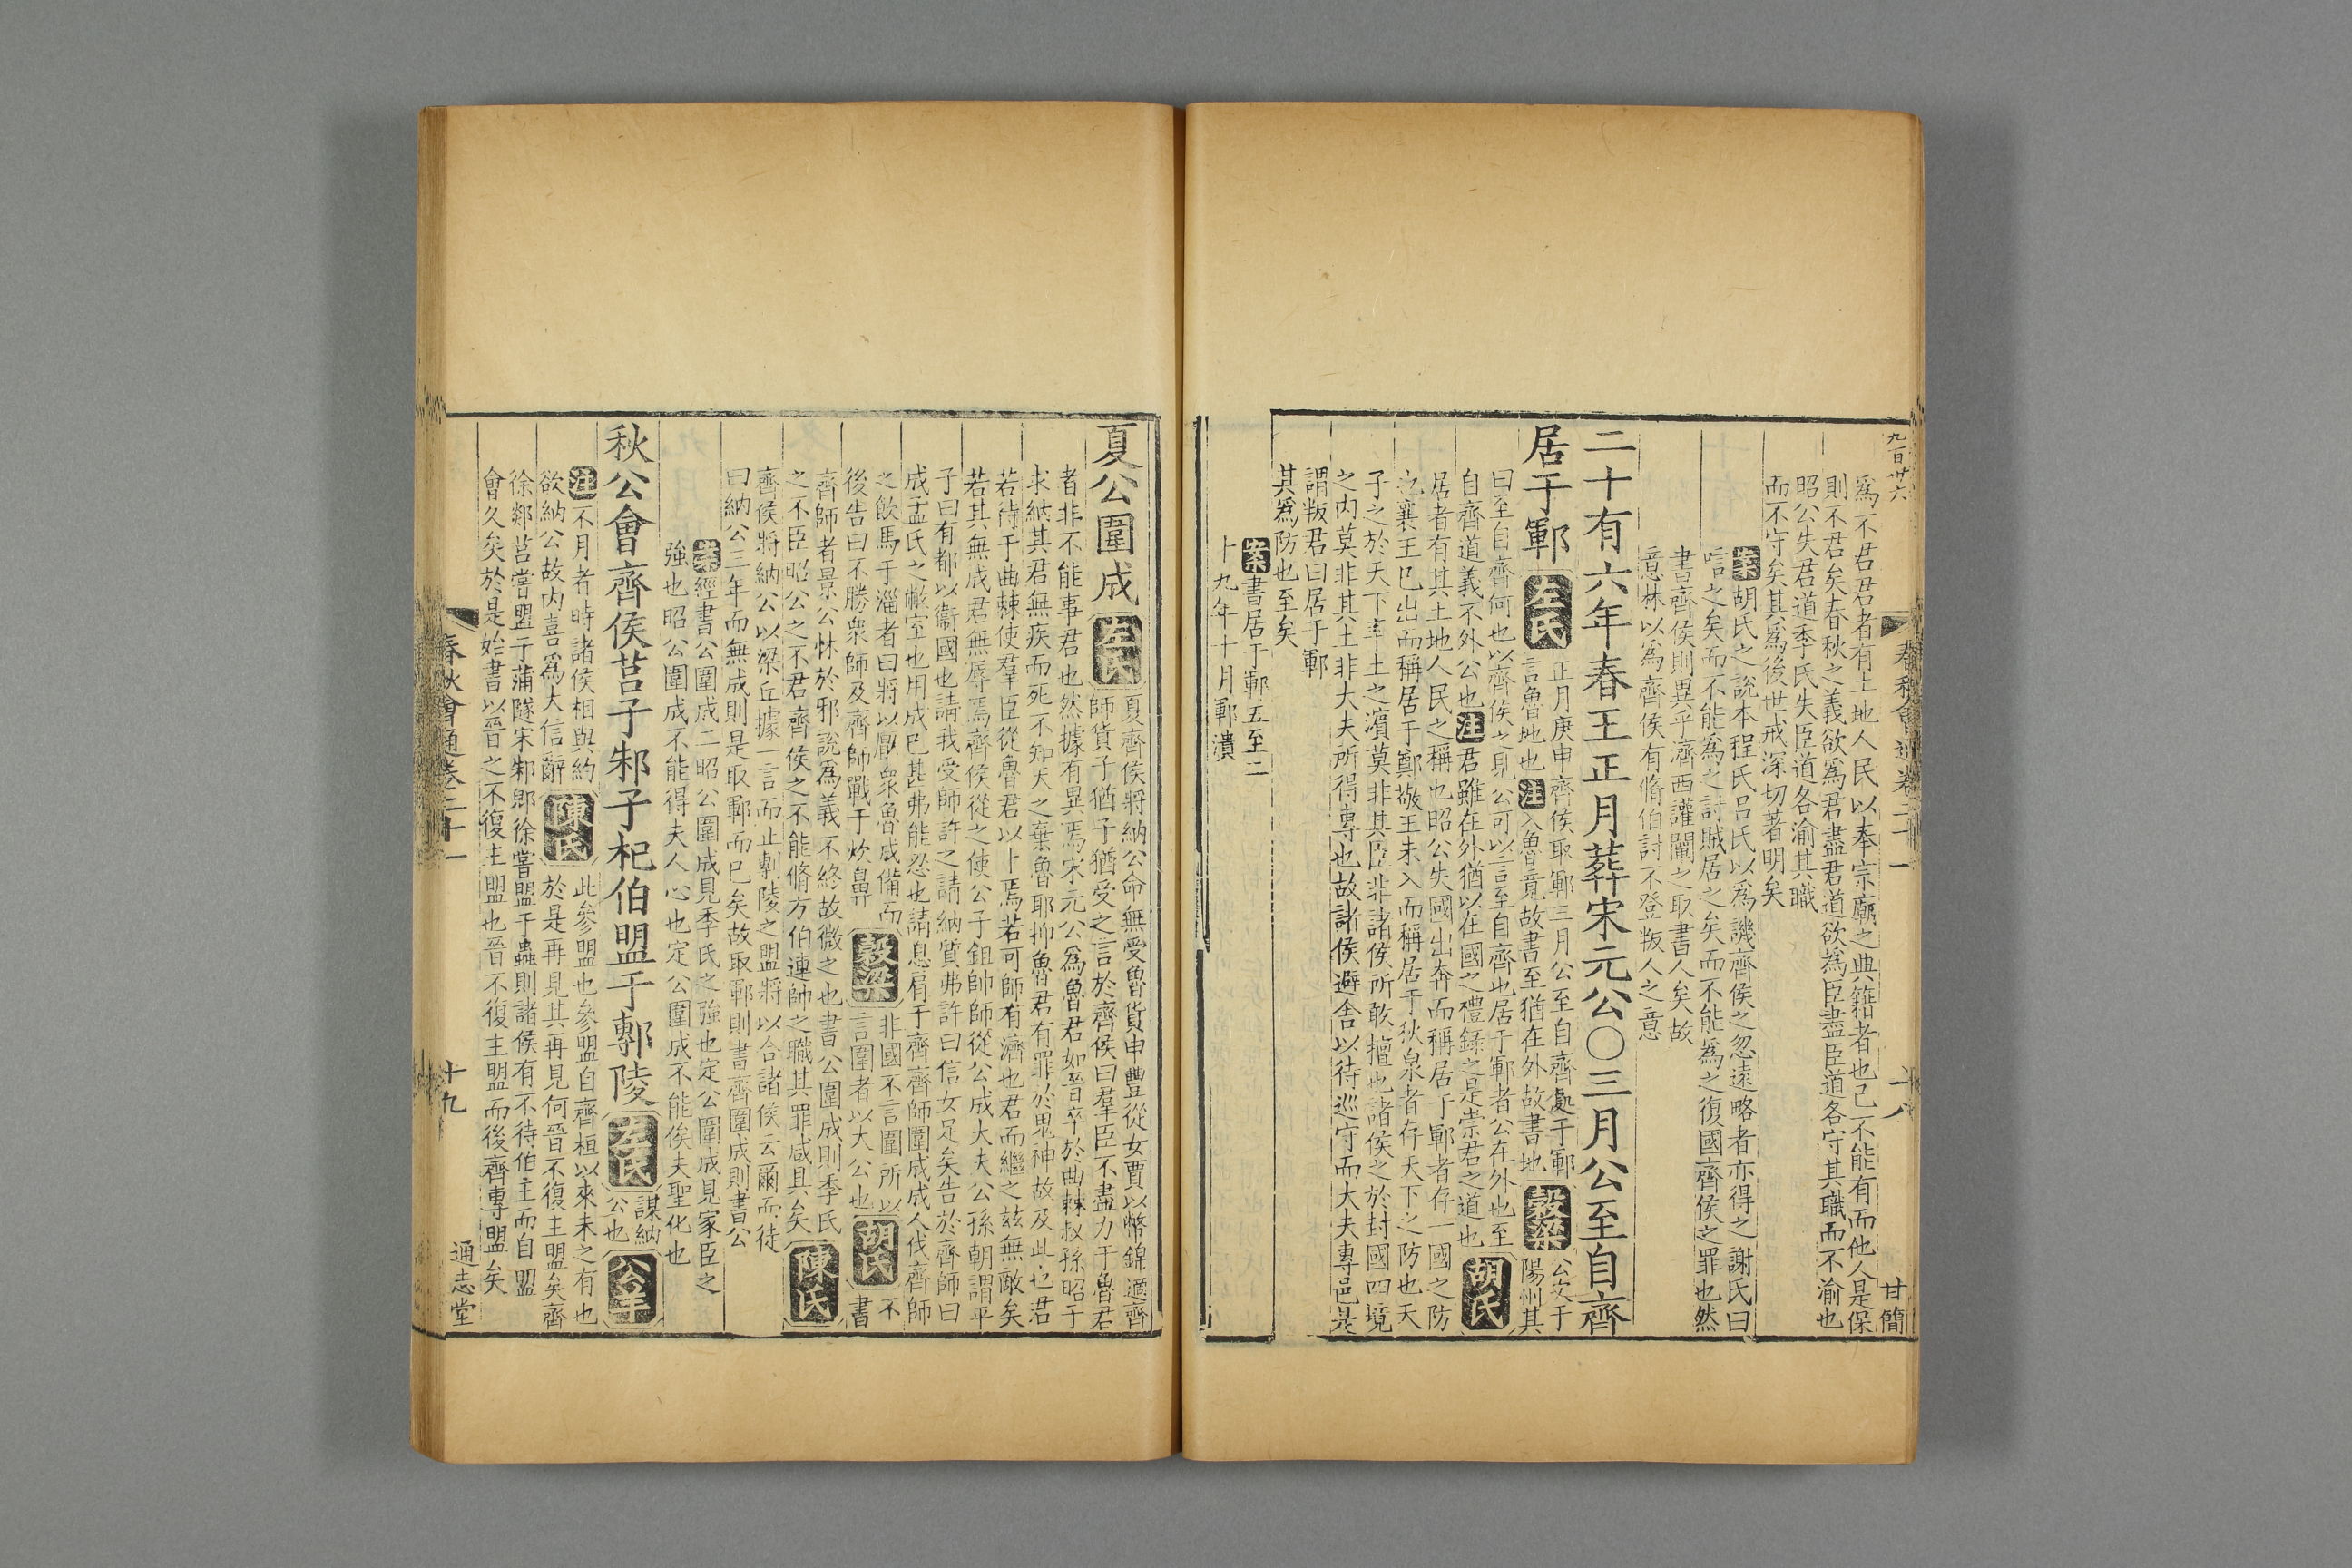 九百卅六
春秋會通卷二十一
十八
甘簡
爲不君君者有土地人民以奉宗廟之典籍者也己不能有而他人是保
則不君矣春秋之義欲爲君盡君道欲爲臣盡臣道各守其職而不渝也
昭公失君道季氏失臣道各渝其職
而不守矣其爲後世戒深切著明矣
案胡氏之說本程氏呂氏以爲譏齊侯之忽遠略者亦得之謝氏曰
唁之矣而不能爲之討賊居之矣而不能爲之復國齊侯之罪也然
書齊侯則異乎濟西讙闡之取書人矣故
意林以爲齊侯有脩伯討不登叛人之意
二十有六年春王正月葬宋元公〇三月公至自齊
居于鄆
左氏
正月庚申齊侯取鄆三月公至自齊處于鄆
言魯地也注入魯竟故書至猶在外故書地
穀梁
公次于
陽州其
曰至自齊何也以齊侯之見公可以言至自齊也居于鄆者公在外也至
自齊道義不外公也注君雖在外猶以在國之禮錄之是崇君之道也
胡氏
居者有其土地人民之稱也昭公失國出奔而稱居于鄆者存一國之防
也襄王已出而稱居于鄭敬王未入而稱居于狄泉者存天下之防也天
子之於天下率土之濱莫非其臣非諸侯所敢擅也諸侯之於封國四境
之內莫非其土非大夫所得專也故諸侯避舍以待巡守而大夫專邑是
謂叛君曰居于鄆
其爲防也至矣
案書居于鄆五至二
十九年十月鄆潰
夏公圍成
左氏
夏齊侯將納公命無受魯貨申豐從女賈以幣錦適齊
師貨子猶子猶受之言於齊侯曰羣臣不盡力于魯君
者非不能事君也然據有異焉宋元公爲魯君如晉卒於曲棘叔孫昭子
求納其君無疾而死不知天之棄魯耶抑魯君有罪於鬼神故及此也君
若待于曲棘使羣臣從魯君以卜焉若可師有濟也君而繼之兹無敵矣
若其無成君無辱焉齊侯從之使公子鉏帥師從公成大夫公孫朝謂平
子曰有都以衞國也請我受師許之請納質弗許曰信女足矣告於齊師曰
成孟氏之敝室也用成已甚弗能忍也請息肩于齊齊師圍成成人伐齊師
之飲馬于淄者曰將以厭衆魯成備而
後告曰不勝衆師及齊師戰于炊鼻
穀梁
非國不言圍所以
言圍者以大公也
胡氏
不
書
齊師者景公怵於邪說爲義不終故微之也書公圍成則季氏
之不臣昭公之不君齊侯之不能脩方伯連帥之職其罪咸具矣
陳氏
齊侯將納公以梁丘據一言而止剸陵之盟將以合諸侯云爾而徒
曰納公三年而無成則是取鄆而已矣故取鄆則書齊圍成則書公
案經書公圍成二昭公圍成見季氏之強也定公圍成見家臣之
強也昭公圍成不能得夫人心也定公圍成不能俟夫聖化也
秋公會齊侯莒子邾子杞伯盟于鄟陵
左氏
謀納
公也
公羊
注不月者時諸侯相與約
欲納公故內喜爲大信辭
陳氏
此參盟也參盟自齊桓以來未之有也
於是再見其再見何晉不復主盟矣齊
徐郯莒嘗盟于蒲隧宋邾郳徐嘗盟于蟲則諸侯有不待伯主而自盟
會久矣於是始書以晉之不復主盟也晉不復主盟而後齊專盟矣
春秋會通卷二十一
十九
通志堂